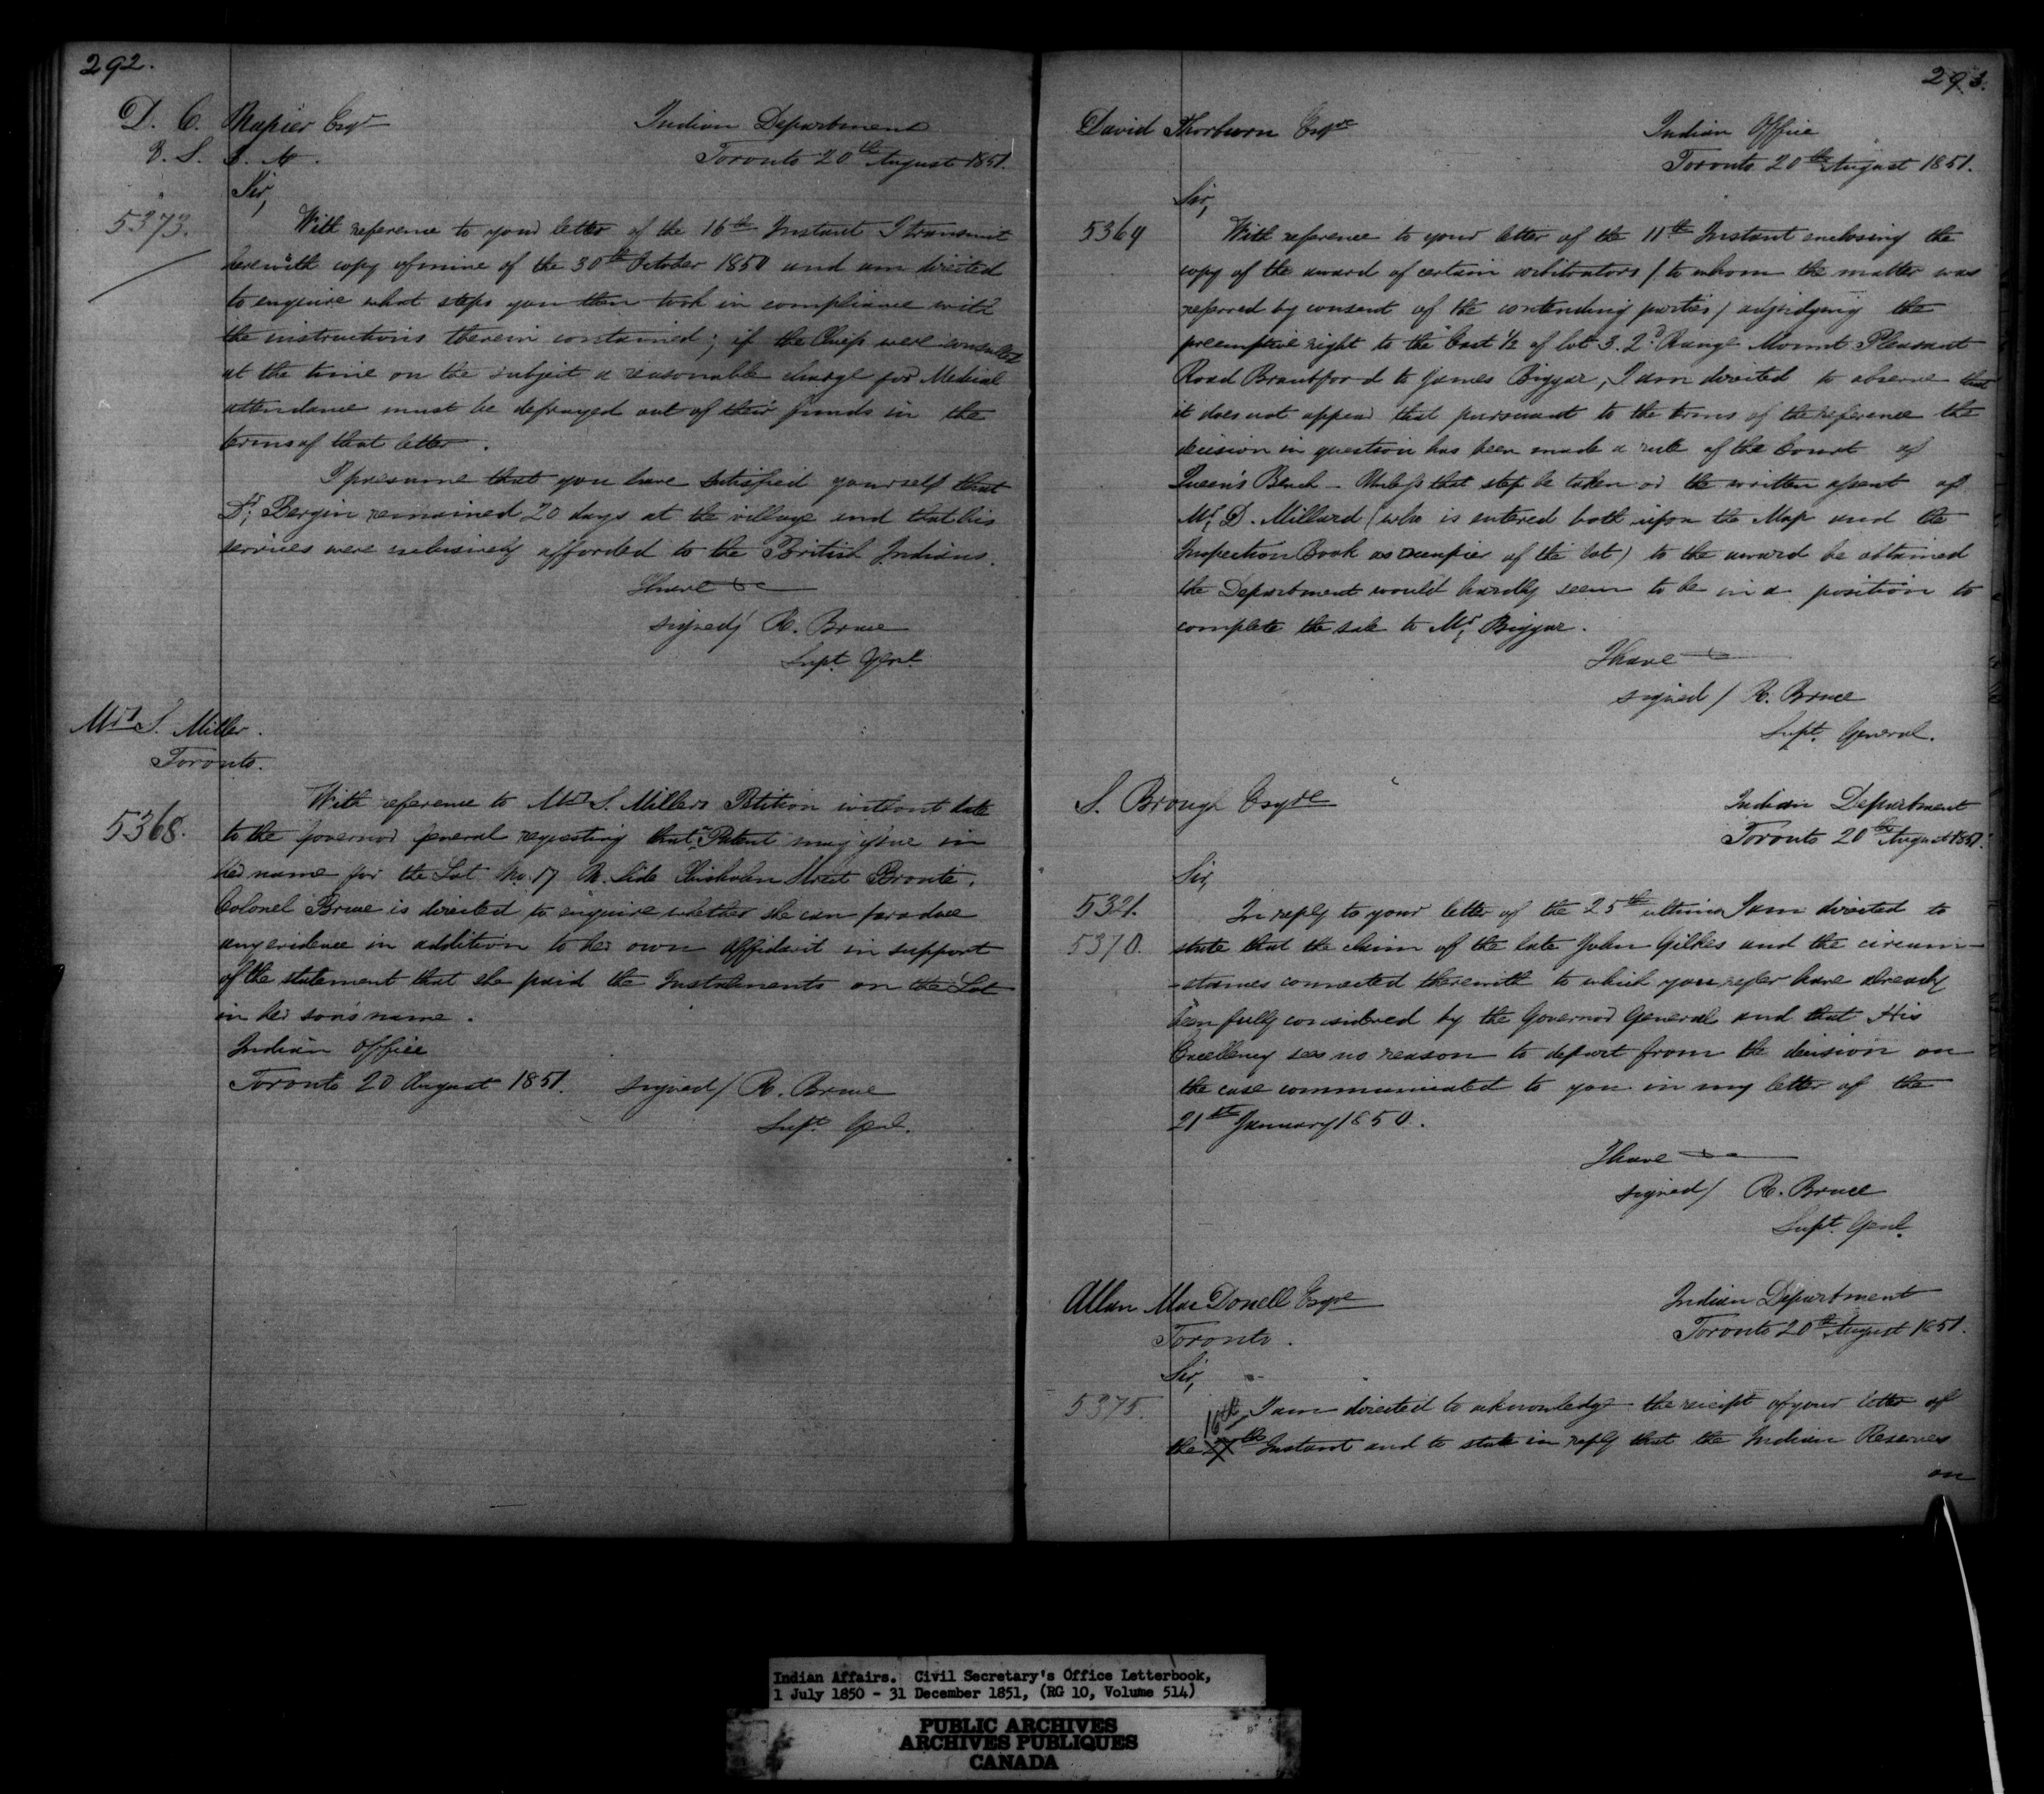 292.
D. C. Napier Esqr
Indian Department
Toronto 20th August 1851.
Sir,
5373.
With reference to your letter of the 16th Instant I transmit
herewith copy of mine of the 30th October 1850 and am directed
to enquire what steps you then took in compliance with
the instructions therein contained; if the Chiefs were consulted
at the time on the subject a reasonable charge for Medical
attendance must be defrayed out of their funds in the
terms of that letter.
I presume that you have satisfied yourself that
Dr. Bergin remained 20 days at the village and that his
services were exclusively afforded to the British Indians.
I have &c
signed/ R. Bruce
Supt Genl
Mrs S. Miller.
Toronto.
5368.
With reference to Mrs S. Millers Petition without date
to the Governor General requesting that a Patent may issue in
her name for the Lot No. 17 N. Side Chisholm Street Bronte.
Colonel Bruce is directed to enquire whether she can produce
any evidence in addition to her own affidavit in support
of the statement that she paid the Instalments on the Lot
in her son's name.
Indian Office
Toronto 20 August 1851.
signed/ R. Bruce
Supt Genl.
293.
David Thorburn Esqre
Indian Office
Toronto 20th August 1851.
Sir,
5364
With reference to your letter of the 11th Instant enclosing the
copy of the award of certain arbitrators / to whom the matter was
referred by consent of the contending parties / adjudging the
preemptive right to the East 1/2 of lot 3. 2d Range Mount Pleasant
Road Brantford to James Biggar, I am directed to observe that
it does not appear that pursuant to the terms of the reference the
decision in question has been made a rule of the Court of
Queen's Bench - Unless that step be taken or the written assent of
Mr. D. Millard (who is entered both upon the Map and the
Inspection Book as occupier of the lot) to the award be obtained
the Department would hardly seem to be in a position to
complete the sale to Mr. Biggar.
I have
signed / R. Bruce
Supt. General.
S. Brough Esqre
Indian Department
Toronto 20th August 1851.
Sir,
5321.
5370.
In reply to your letter of the 25th ultimo I am directed to
state that the claim of the late John Gilkes and the circum-
-stances connected therewith to which you refer have already
been fully considered by the Governor General and that His
Excellency sees no reason to depart from the decision on
the case communicated to you in my letter of the
21st January 1850.
I have
signed/ R. Bruce
Supt. Genl.
Allan Mac Donell Esqre
Toronto.
Indian Department
Toronto 20th August 1851.
Sir,
5375.
I am directed to acknowledge the receipt of your letter of
16th
the th Instant and to state in reply that the Indian Reserves
on
Indian Affairs. Civil Secretary's Office Letterbook,
1 July 1850 - 31 December 1851, (RG 10, Volume 514)
PUBLIC ARCHIVES
ARCHIVES PUBLIQUES
CANADA